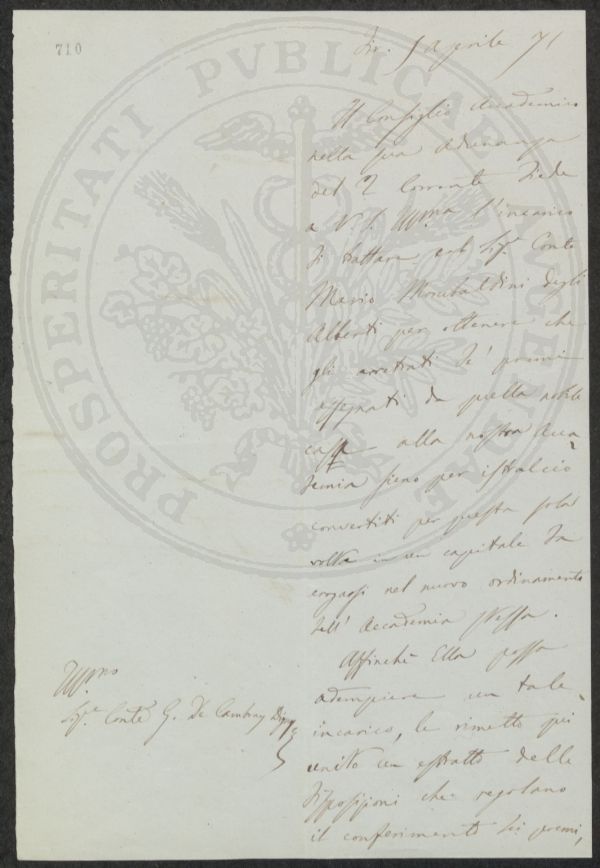 710
5 Aprile 71
Il Consiglio Accademico
nella sua Adunanza
del 2 Corrente diede
a V. S. Illma l'incarico
di trattare col Sigr Conte
Mario Mori Ubaldini degli
Alberti per ottenere che
gli arretrati de' premi
assegnati da quella nobile
casa alla nostra Acca
demia sieno per istralcio
convertiti per questa sola
volta in un capitale da
erogarsi nel nuovo ordinamento
dell' Accademia stessa.
Affinchè Ella possa
adempiere un tale
incarico, le rimetto qui
unito un estratto delle
disposizioni che regolano
il conferimento dei premi,
Illmo
Sigr Conte G. De Cambray Digny
PROSPERITATI PVBLICAE AVGENDAE